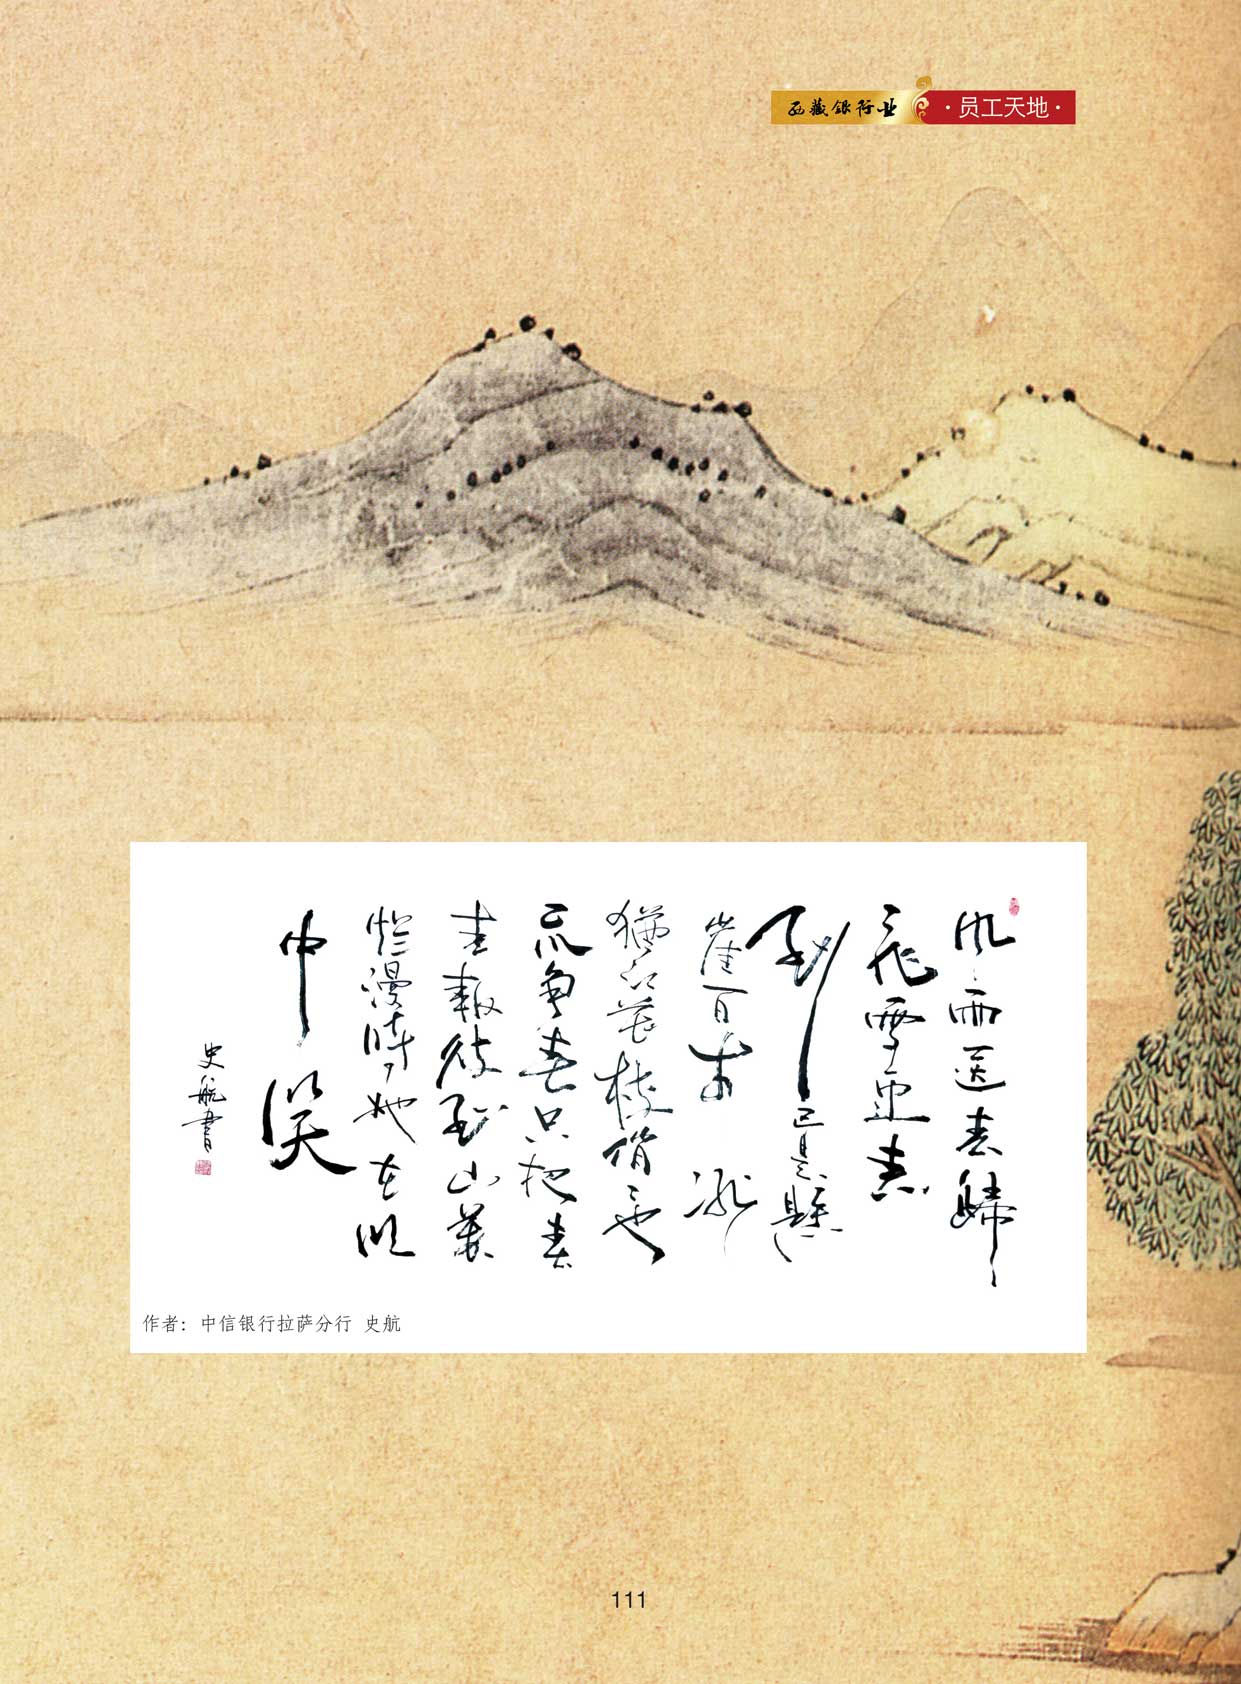 西藏银行业 ·员工天地·
风雨送春歸
飛雪迎春
到已是懸
崖百丈冰
猶有花枝俏〻也
不争春只把春
来報待到山花
烂漫時她在丛
中笑
史航書
作者：中信银行拉萨分行 史航
111